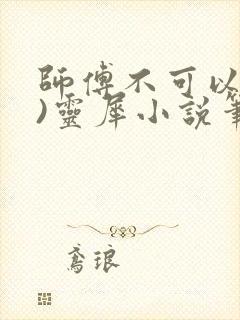 師傅不可以
)靈犀小說筆
鳶琅